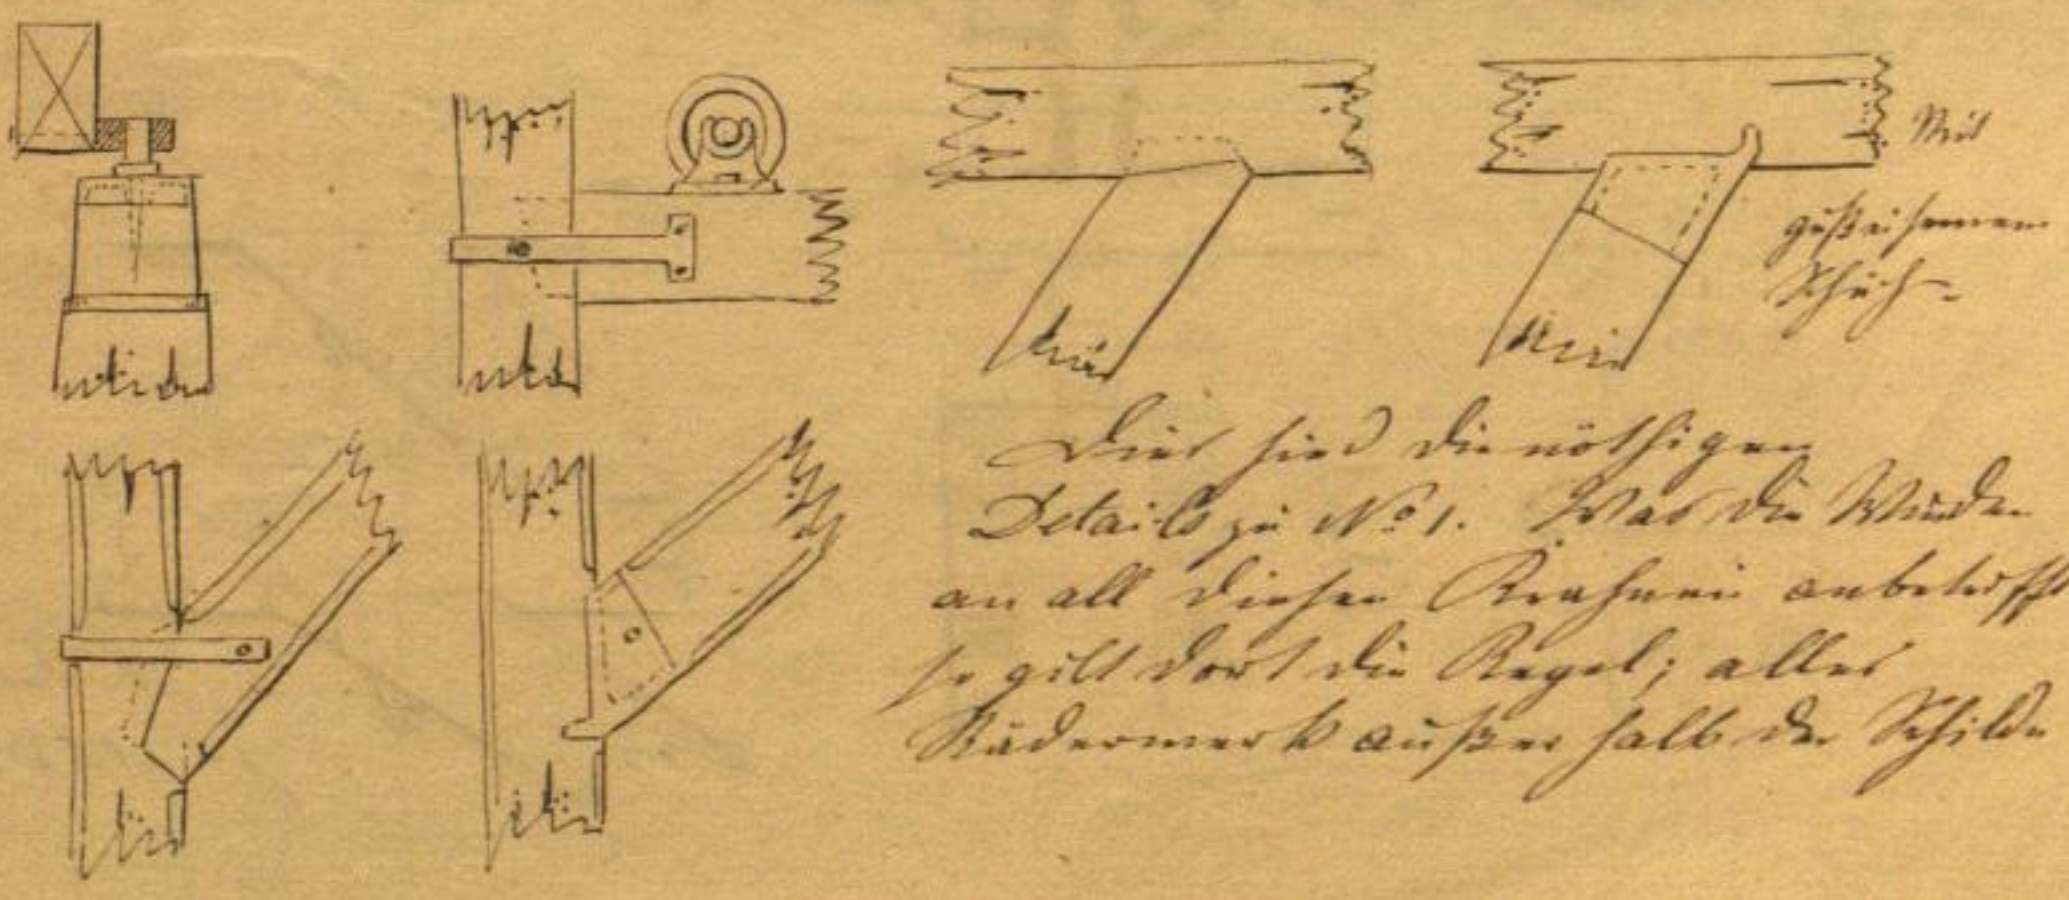 Mit
gußeisernem
Schuh.
Dies sind die nöthigen
Details zu No 1. Was die Winden
an all diesen Krahnen anbetrifft
so gilt dort die Regel; alles
Räderwerk außerhalb der Schilde